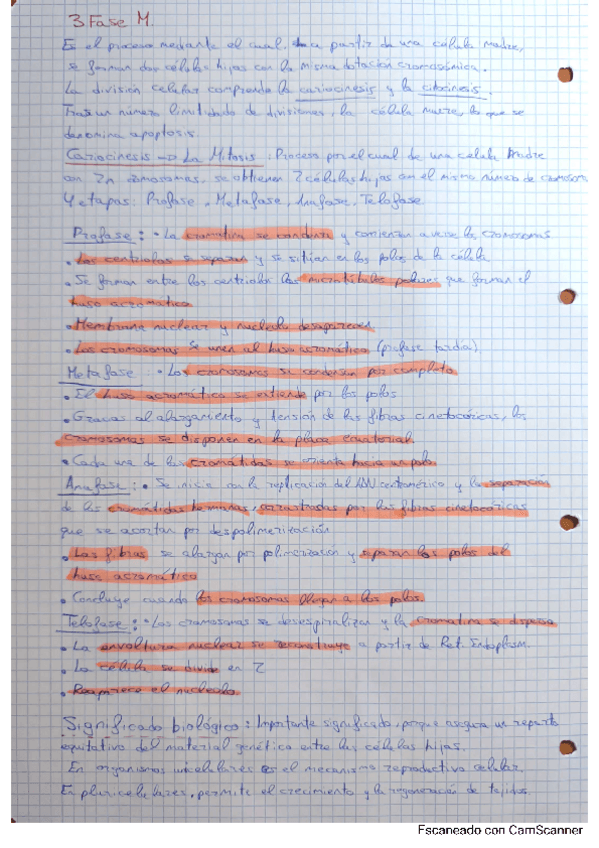 3 Fase M.
Es el proceso mediante el cual, a partir de una célula madre,
se forman dos células hijas con la misma dotación cromosómica.
La división celular comprende la cariocinesis y la citocinesis.
Tras un número limitado de divisiones, la célula muere, lo que se
denomina apoptosis.
Cariocinesis => La Mitosis: Proceso por el cual de una célula madre
con 2n cromosomas, se obtienen 2 células hijas con el mismo número de cromosom
4 etapas: Profase, Metafase, Anafase, Telofase
Profase: • La cromatina se condensa y comienzan a verse los cromosomas
• Los centriolos se separan y se sitúan en los polos de la célula
• Se forman entre los centriolos los microtúbulos polares que forman el
huso acromático
• Membrana nuclear y nucleolo desaparecen
• Los cromosomas se unen al huso acromático (profase tardía)
Metafase • Los cromosomas se condensan por completo
• El huso acromático se extiende por los polos
• Gracias al alargamiento y tensión de las fibras cinetocóricas, los
cromosomas se disponen en la placa ecuatorial.
• Cada una de las cromátidas se orienta hacia un polo.
Anafase: • Se inicia con la replicación del ADN centomérico y la separación
de las cromátidas hermanas, arrastradas por las fibras cinetocóricas
que se acortan por despolimerización
• Las fibras se alargan por polimerización y separan los polos del
huso acromático
• Concluye cuando los cromosomas llegan a los polos.
Telofase: • Los cromosomas se desespiralizan y la cromatina se dispersa
• La envoltura nuclear se reconstruye a partir de Ret. Endoplasm.
• La célula se divide en 2
• Reaparece el nucleolo
Significado biológico: Importante significado, porque asegura un reparto
equitativo del material genético entre las células hijas.
En organismos unicelulares es el mecanismo reproductivo celular.
En pluricelulares, permite el crecimiento y la regeneración de tejidos.
Escaneado con CamScanner